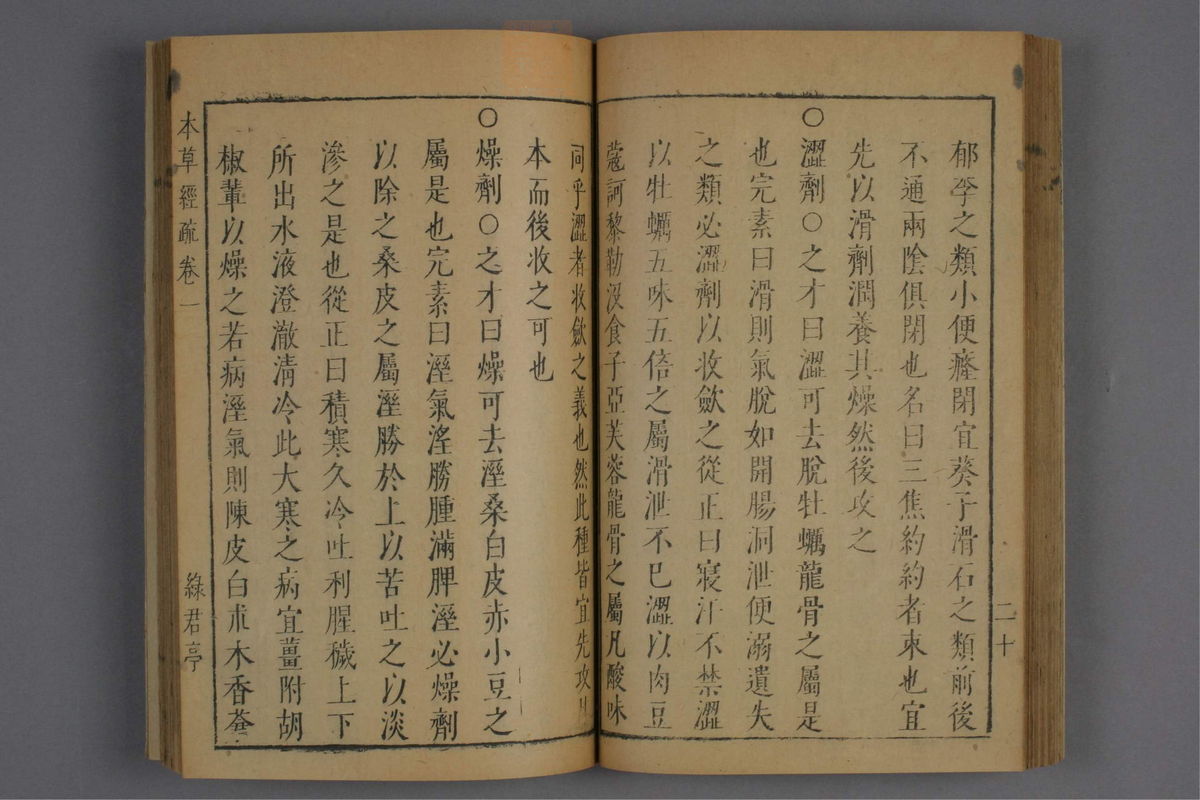 二十
郁李之類小便癃閉宜葵子滑石之類前後
不通兩陰俱閉也名曰三焦約約者束也宜
先以滑劑潤養其燥然後攻之
○澀劑○之才曰澀可去脫牡蠣龍骨之屬是
也完素曰滑則氣脫如開腸洞泄便溺遺失
之類必澀劑以收歛之從正曰寢汗不禁澀
以牡蠣五味五倍之屬滑泄不已澀以肉豆
蔻訶黎勒沒食子亞芙蓉龍骨之屬凡酸味
同乎澀者收歛之義也然此種皆宜先攻其
本而後收之可也
○燥劑○之才曰燥可去溼桑白皮赤小豆之
屬是也完素曰溼氣淫勝腫滿脾溼必燥劑
以除之桑皮之屬溼勝於上以苦吐之以淡
滲之是也從正曰積寒久冷吐利腥穢上下
所出水液澄澈清冷此大寒之病宜薑附胡
椒輩以燥之若病溼氣則陳皮白朮木香蒼
本草經疏卷一
綠君亭